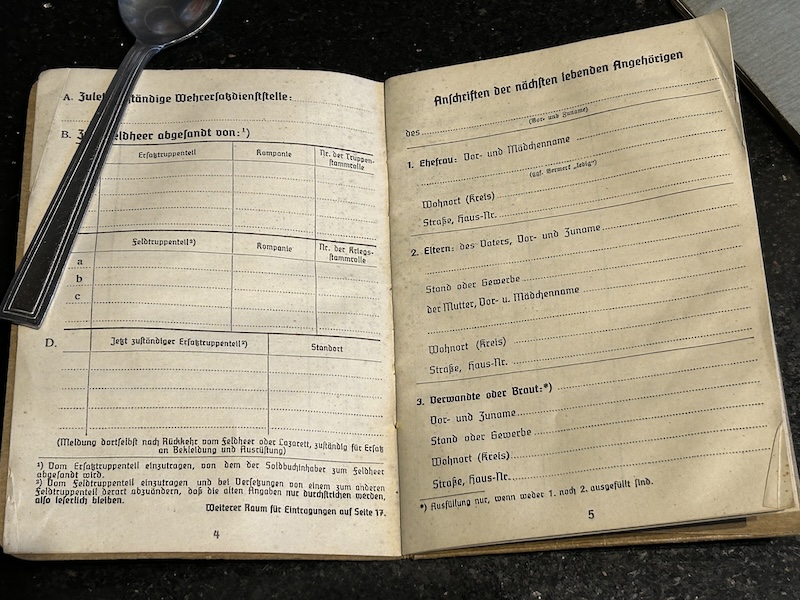 A. Zuständige Wehrersatzdienststelle:
B. Feldheer abgesandt von:¹)
Ersatztruppenteil
Kompanie
Nr. der Truppen-
stammrolle
Feldtruppenteil²)
Kompanie
Nr. der Kriegs-
stammrolle
a
b
c
D.
Jetzt zuständiger Ersatztruppenteil²)
Standort
(Meldung dortselbst nach Rückkehr vom Feldheer oder Lazarett, zuständig für Ersatz
an Bekleidung und Ausrüstung)
¹) Vom Ersatztruppenteil einzutragen, von dem der Soldbuchinhaber zum Feldheer
abgesandt wird.
²) Vom Feldtruppenteil einzutragen und bei Versetzungen von einem zum anderen
Feldtruppenteil derart abzuändern, daß die alten Angaben nur durchstrichen werden,
also leserlich bleiben.
Weiterer Raum für Eintragungen auf Seite 17.
4
Anschriften der nächsten lebenden Angehörigen
des
(Vor- und Zuname)
1. Ehefrau: Vor- und Mädchenname
(ggf. Vermerk „ledig“)
Wohnort (Kreis)
Straße, Haus-Nr.
2. Eltern: des Vaters, Vor- und Zuname
Stand oder Gewerbe
der Mutter, Vor- u. Mädchenname
Wohnort (Kreis)
Straße, Haus-Nr.
3. Verwandte oder Braut:*)
Vor- und Zuname
Stand oder Gewerbe
Wohnort (Kreis)
Straße, Haus-Nr.
*) Ausfüllung nur, wenn weder 1. noch 2. ausgefüllt sind.
5